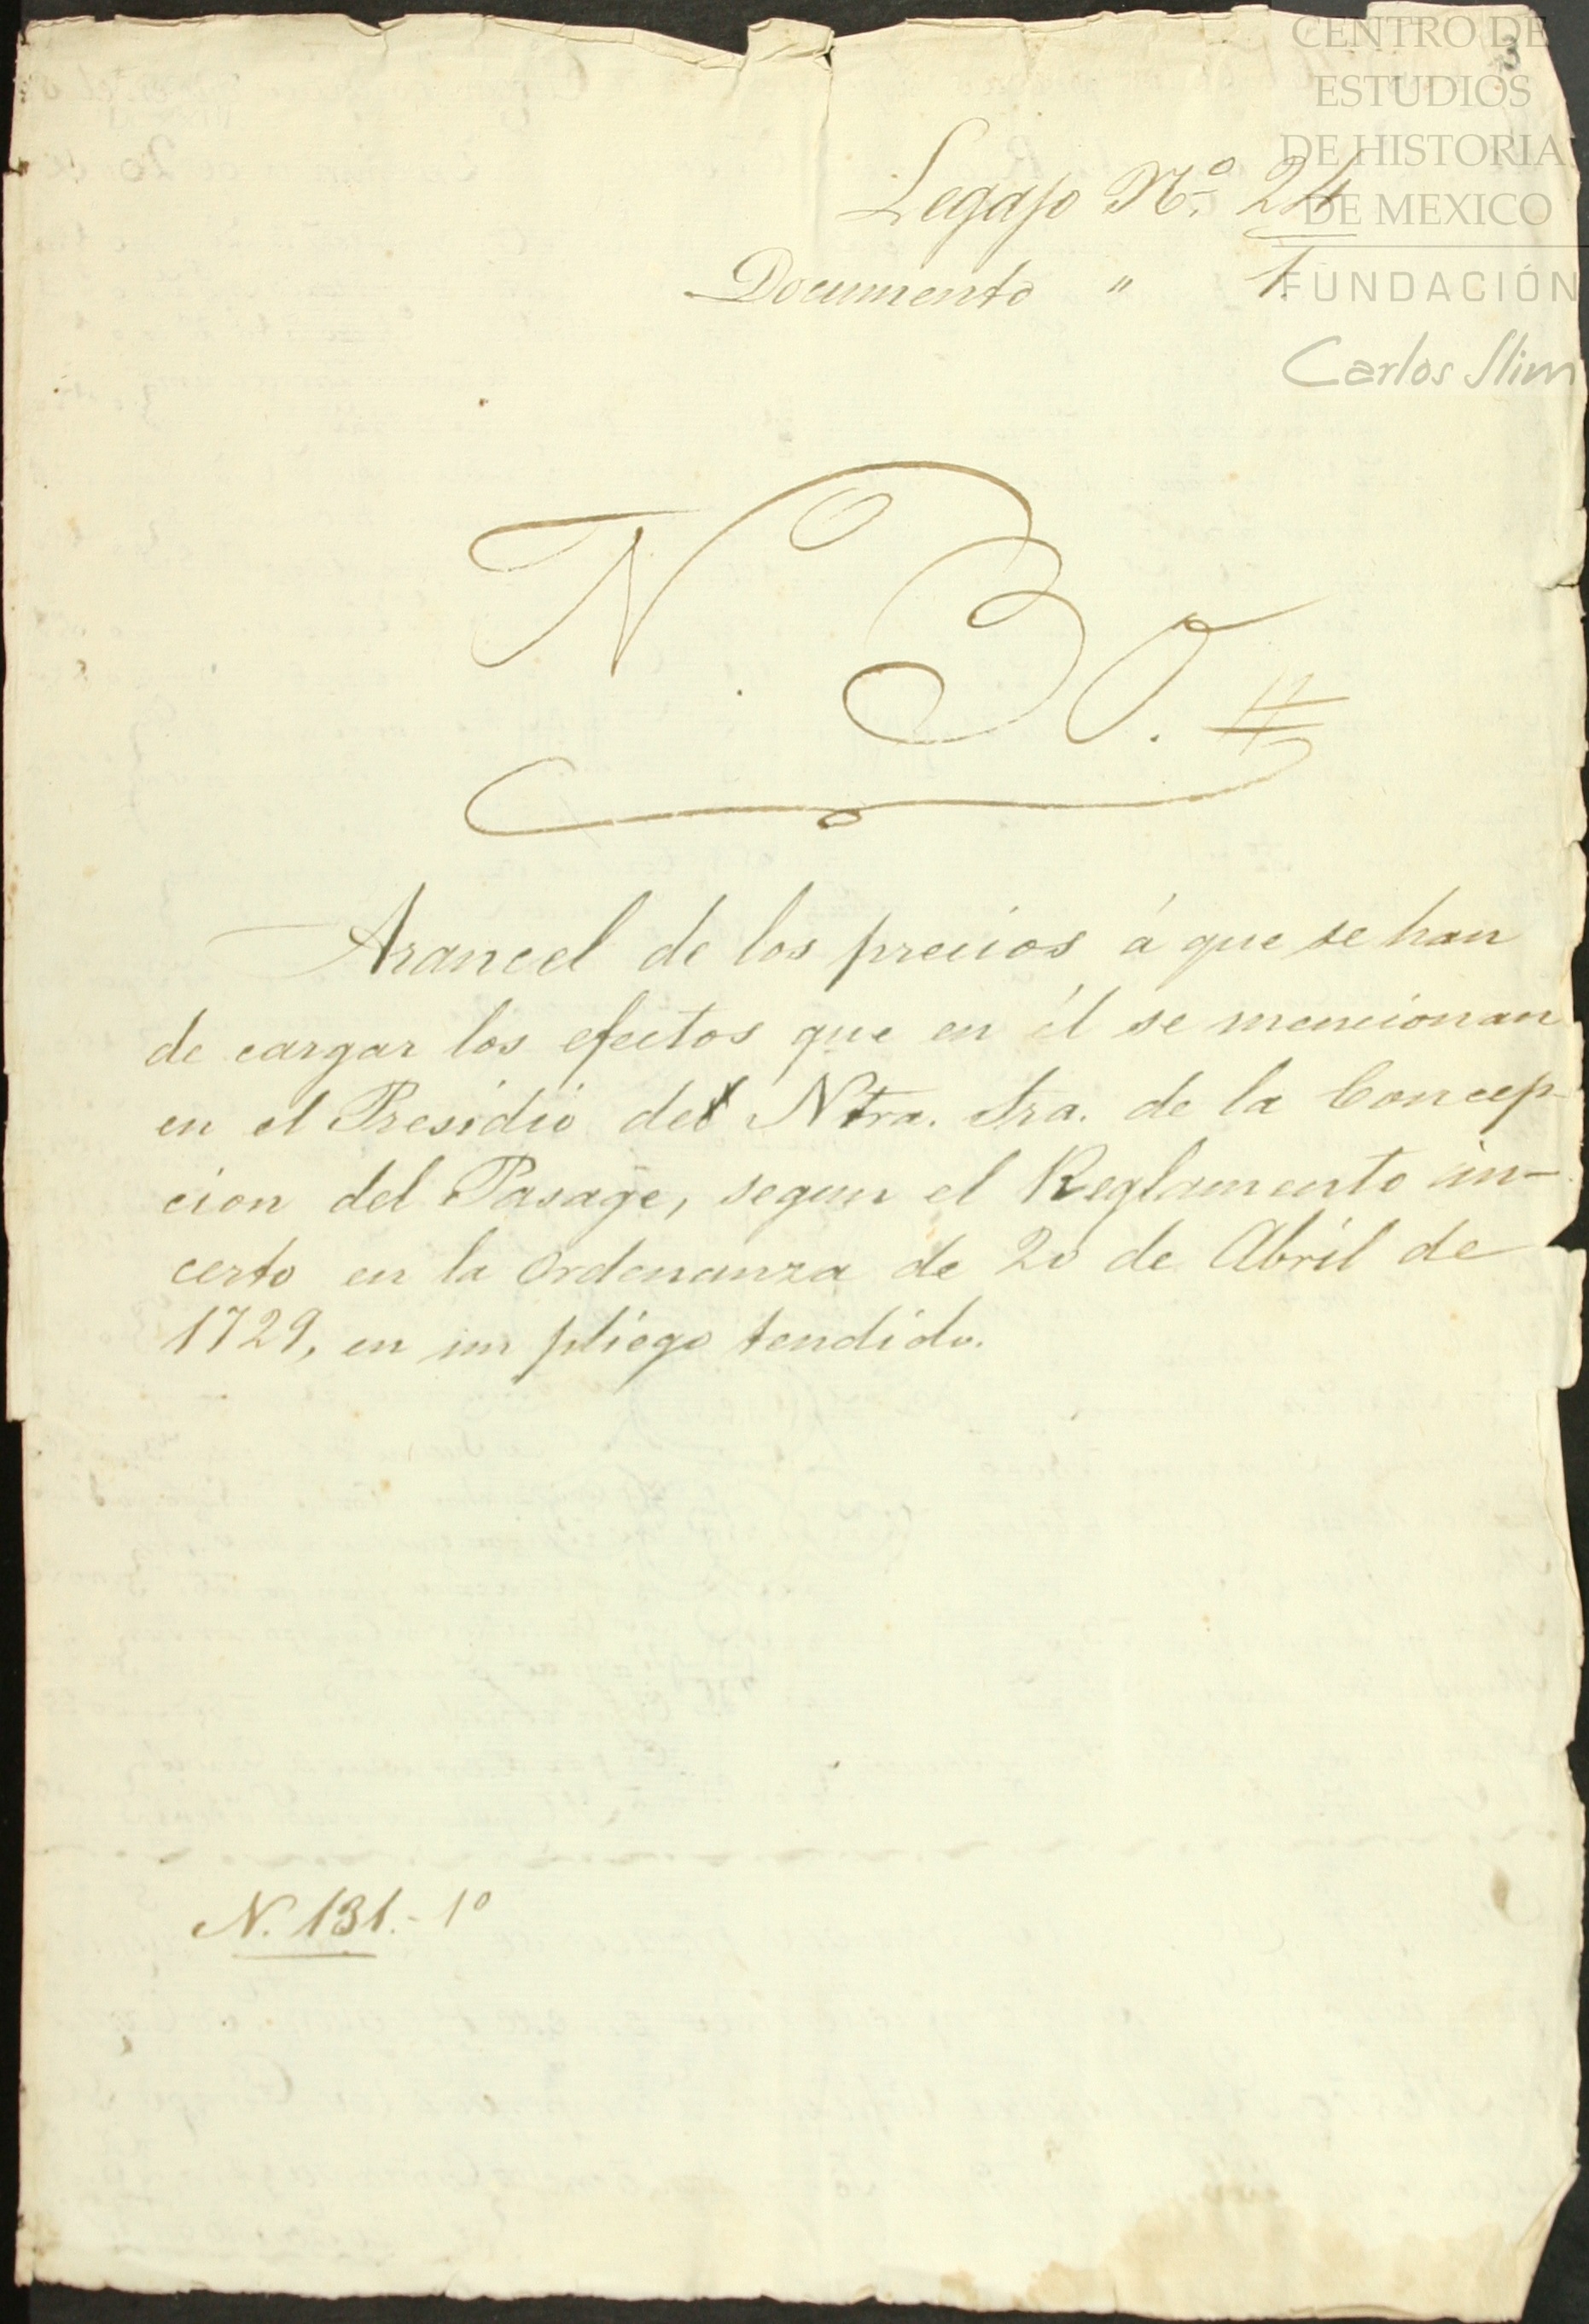 CENTRO DE
ESTUDIOS
DE HISTORIA
DE MEXICO
FUNDACIÓN
Carlos Slim
3
Legajo No. 24
Documento " 1.
No. 30.
Arancel de los precios á que se han
de cargar los efectos que en él se mencionan
en el Presidio del Ntra. Sra. de la Concep-
cion del Pasage, segun el Reglamento in-
certo en la Ordenanza de 20 de Abril de
1729, en un pliego tendido.
N. 131.- 1o